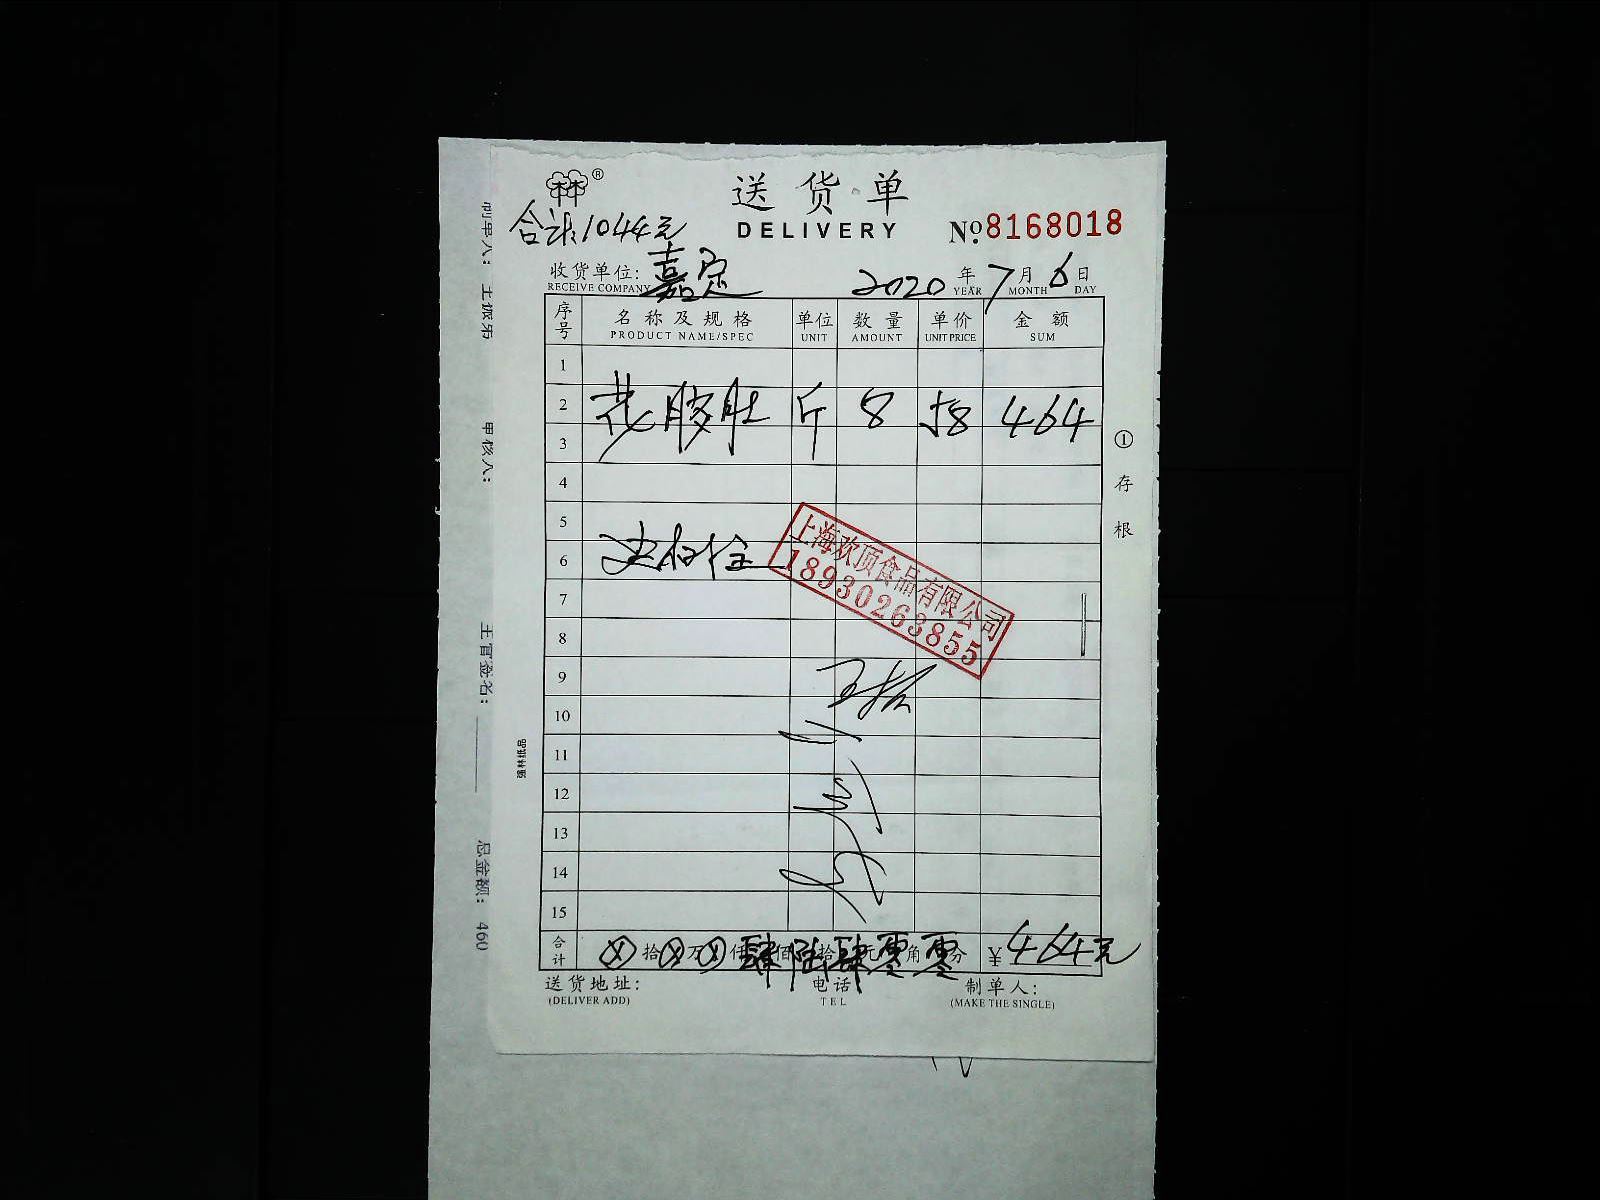 林®
送货单
合计:1044元
DELIVERY
No.8168018
收货单位: 嘉定
2020 年 7 月 6 日
RECEIVE COMPANY YEAR MONTH DAY
序号 名称及规格 单位 数量 单价 金额
PRODUCT NAME/SPEC UNIT AMOUNT UNIT PRICE SUM
1
2 花胶肚 斤 8 58 464
3
4
5
6
7
8
9
10
11
12
13
14
15
上海欢顶食品有限公司
18930263855
合计 ⊗拾⊗万⊗仟肆佰陆拾肆元零角零分 ¥464元
送货地址: 电话 制单人:
(DELIVER ADD) TEL (MAKE THE SINGLE)
①存根
强林纸品
甲核人:
主管签名:
总金额: 460